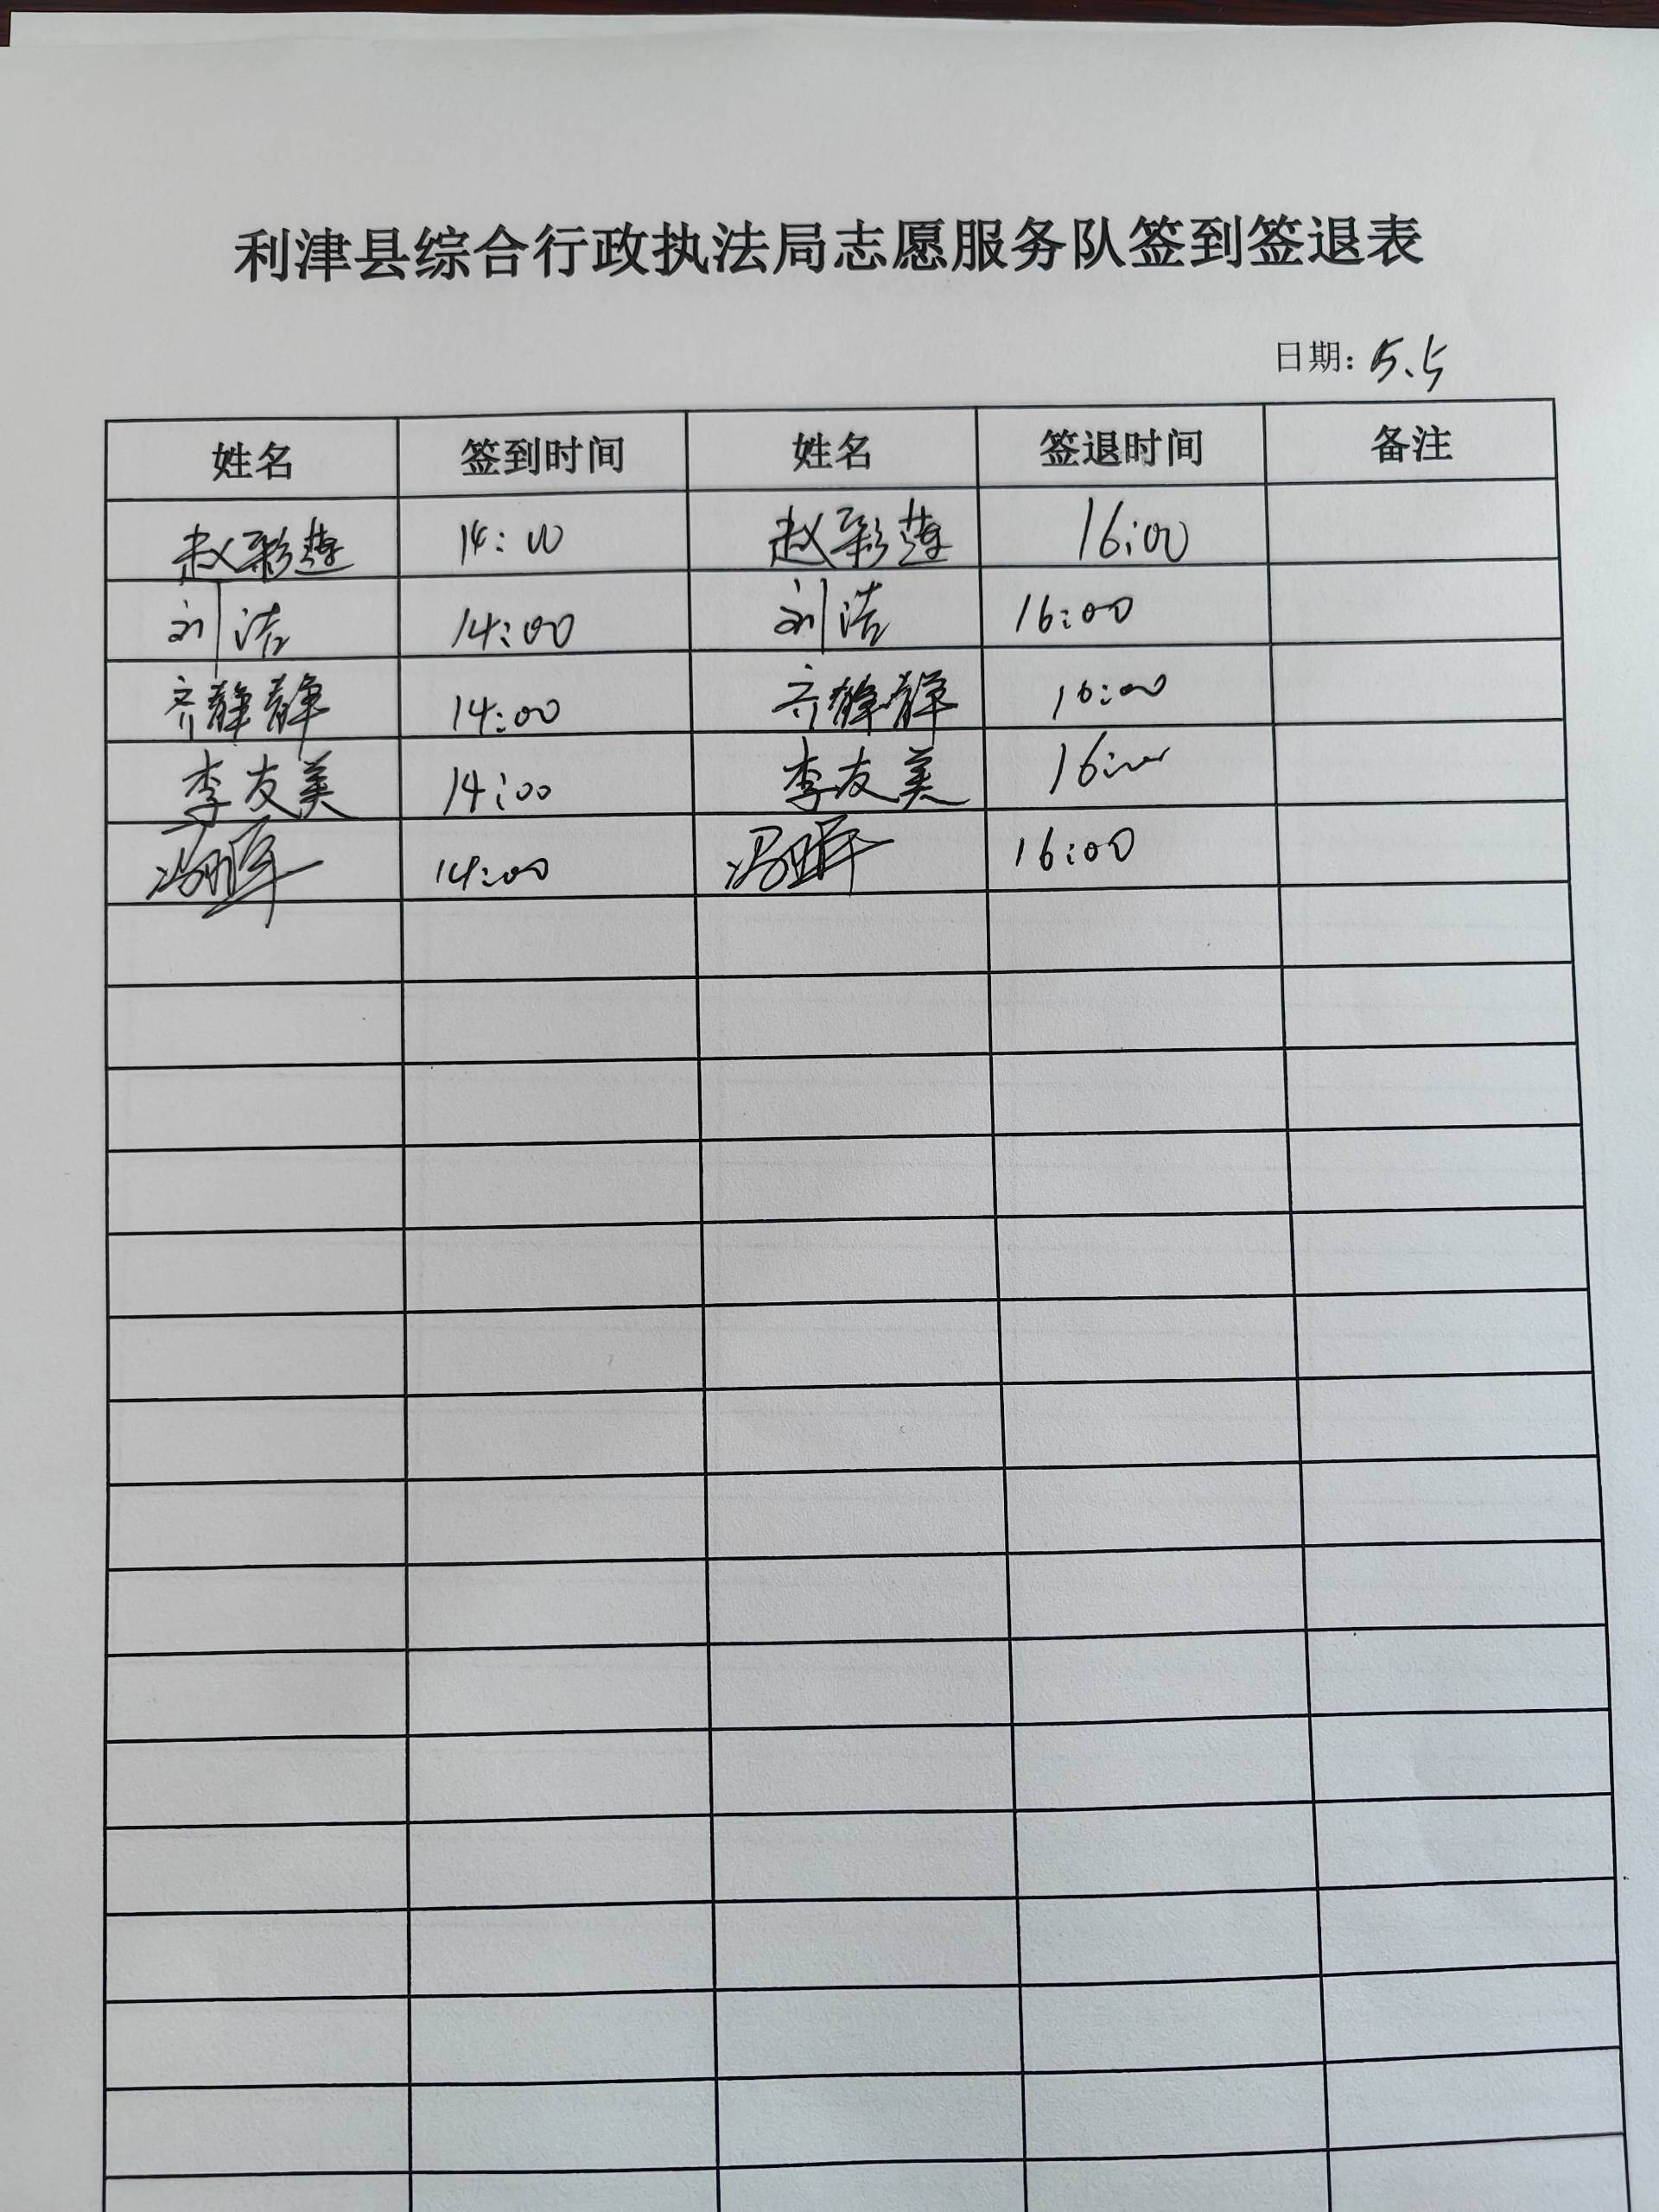 利津县综合行政执法局志愿服务队签到签退表
日期: 5.5
姓名 签到时间 姓名 签退时间 备注
赵彩莲 14:00 赵彩莲 16:00
刘洁 14:00 刘洁 16:00
齐静静 14:00 齐静静 16:00
李友美 14:00 李友美 16:00
冯 14:00 冯 16:00